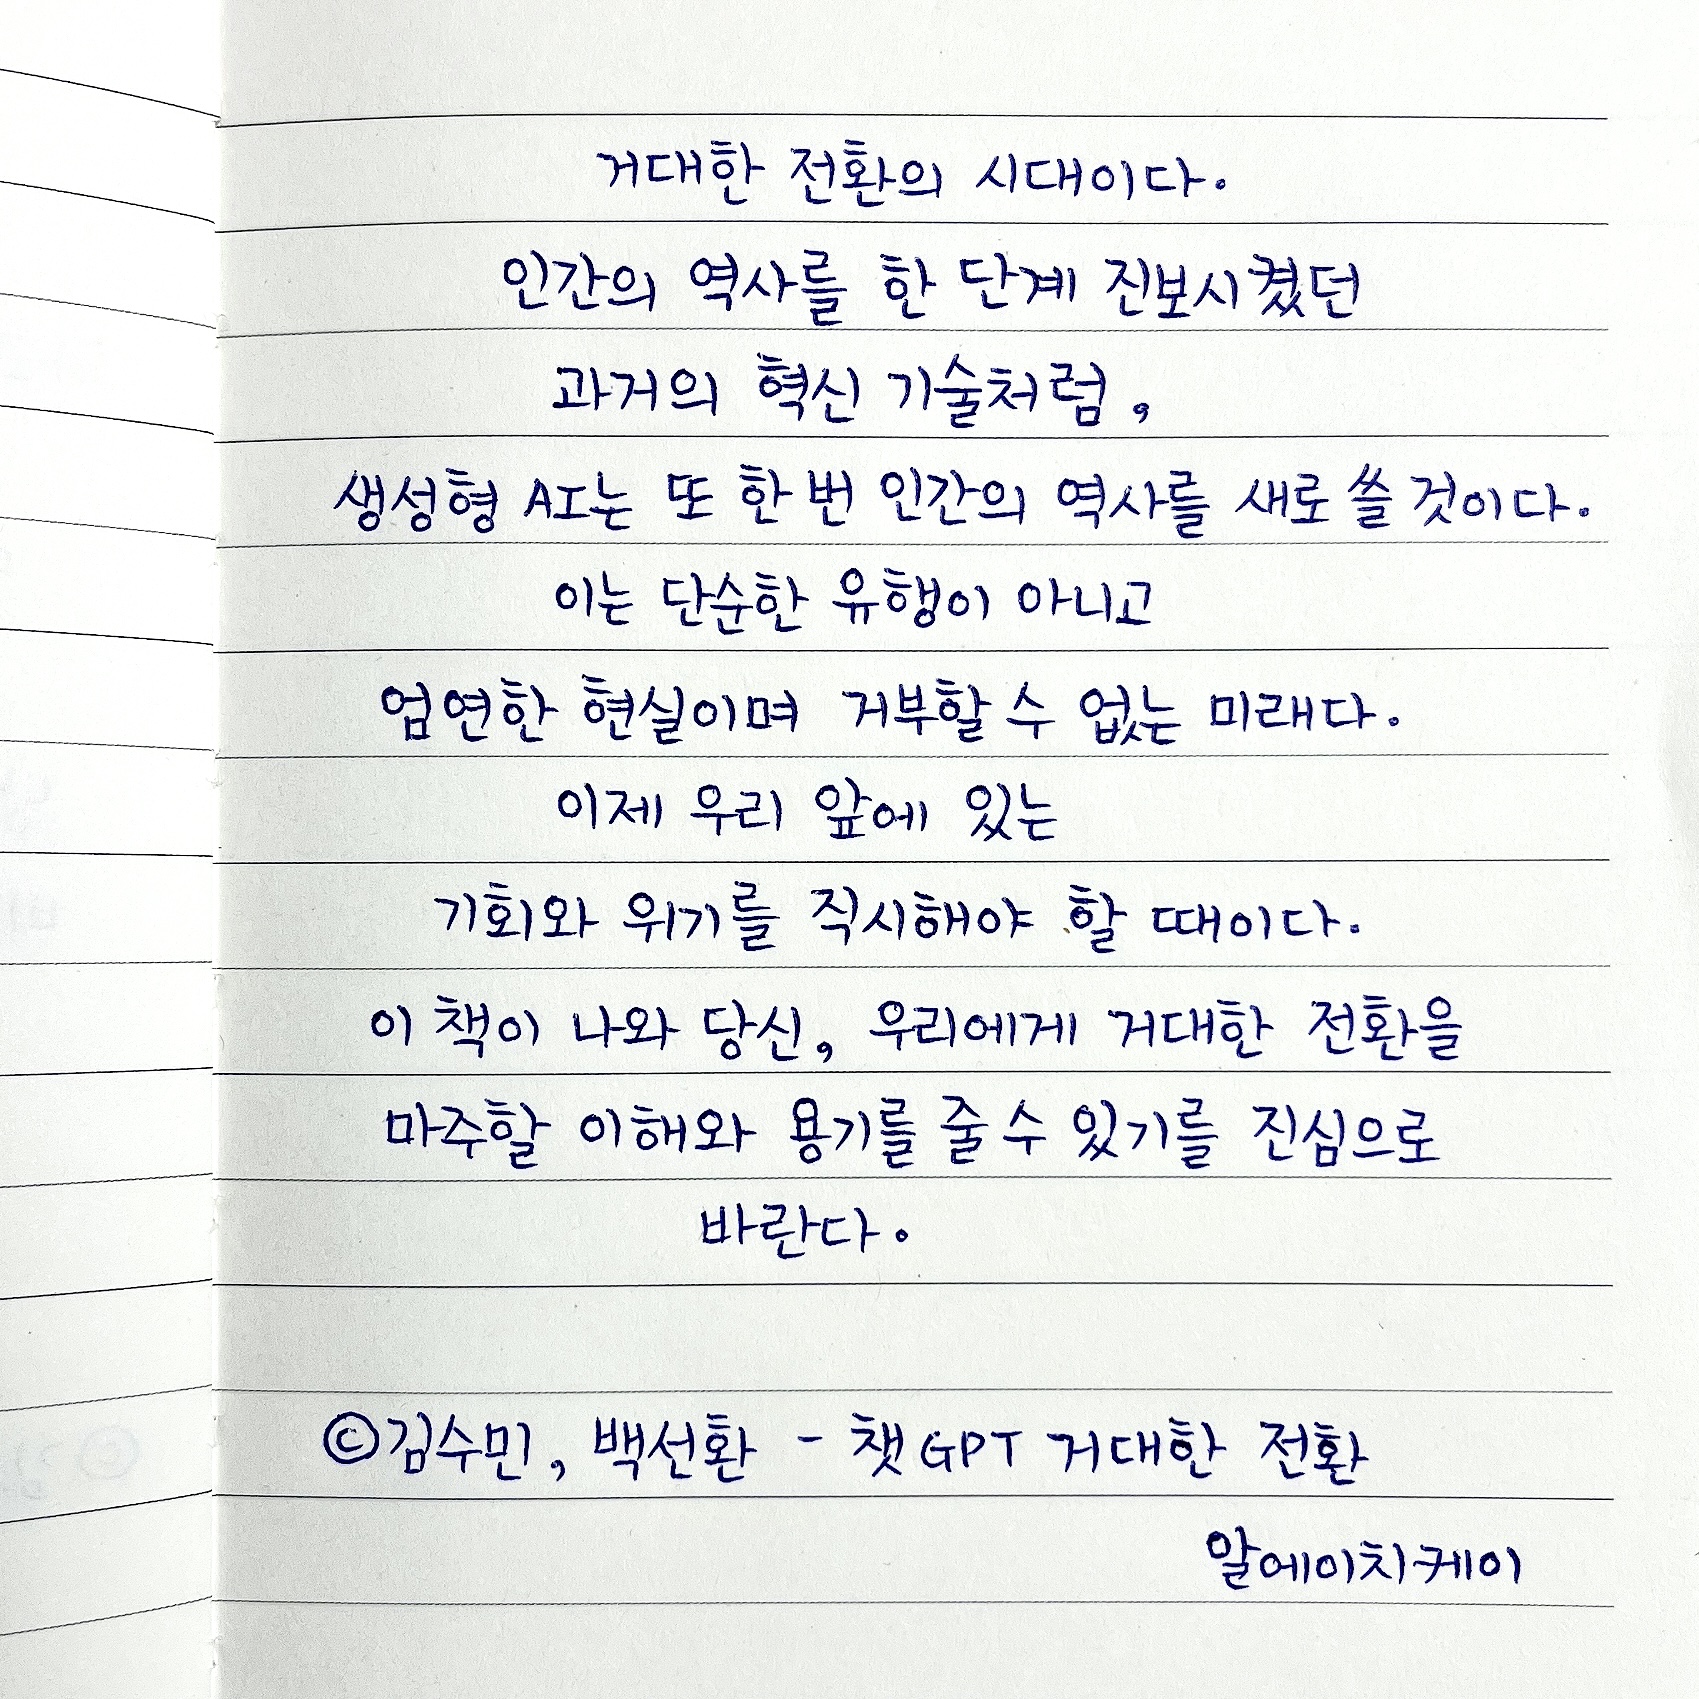 거대한 전환의 시대이다.
인간의 역사를 한 단계 진보시켰던
과거의 혁신 기술처럼,
생성형 AI는 또 한 번 인간의 역사를 새로 쓸 것이다.
이는 단순한 유행이 아니고
엄연한 현실이며 거부할 수 없는 미래다.
이제 우리 앞에 있는
기회와 위기를 직시해야 할 때이다.
이 책이 나와 당신, 우리에게 거대한 전환을
마주할 이해와 용기를 줄 수 있기를 진심으로
바란다.
©김수민, 백선환 - 챗GPT 거대한 전환
알에이치케이